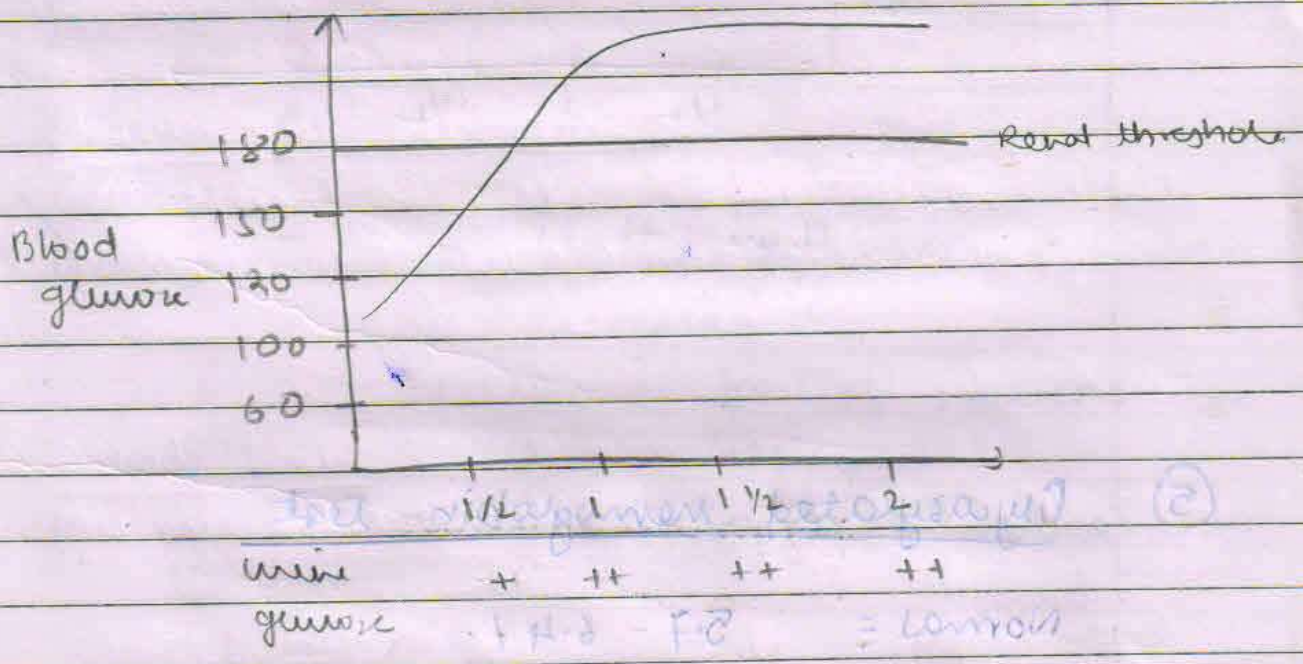 180
Renal threshold
150
Blood
glucose
120
100
60
1/2 1 1 1/2 2
urine + ++ ++ ++
glucose
(5)
Normal = 5.7 - 6.4 %